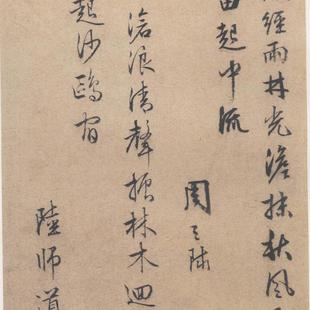 經雨林光澹抹秋風
笛起中流
周天球
滄浪清聲振林木迴
起沙鷗宿
陸師道